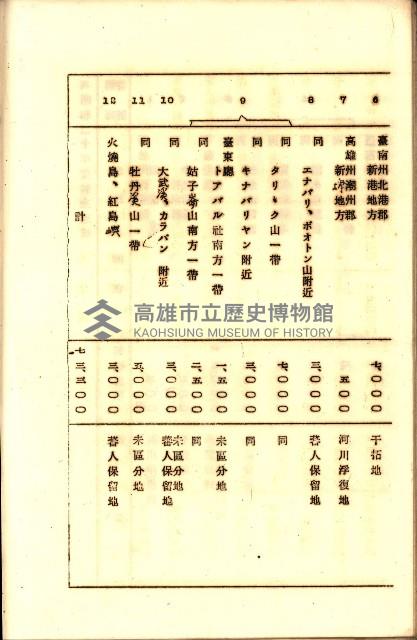 6
臺南州北港郡
新港地方
七、〇〇〇
干拓地
7
高雄州潮州郡
新埤地方
五〇〇
河川浮復地
8
同
エナバリ、ボオトン山附近
三、〇〇〇
蕃人保留地
9
同
タリリク山一帶
七、〇〇〇
同
同
キナバリヤン附近
三、〇〇〇
同
臺東廳
トアバル社南方一帶
一、五〇〇
未區分地
同
姑子崙山南方一帶
二、五〇〇
同
10
同
大武溪、カラパン附近
三、〇〇〇
未區分地
蕃人保留地
11
同
牡丹溪山一帶
五、〇〇〇
未區分地
12
火燒島、紅島嶼
三、〇〇〇
蕃人保留地
計
七三、三〇〇
高雄市立歷史博物館
KAOHSIUNG MUSEUM OF HISTORY